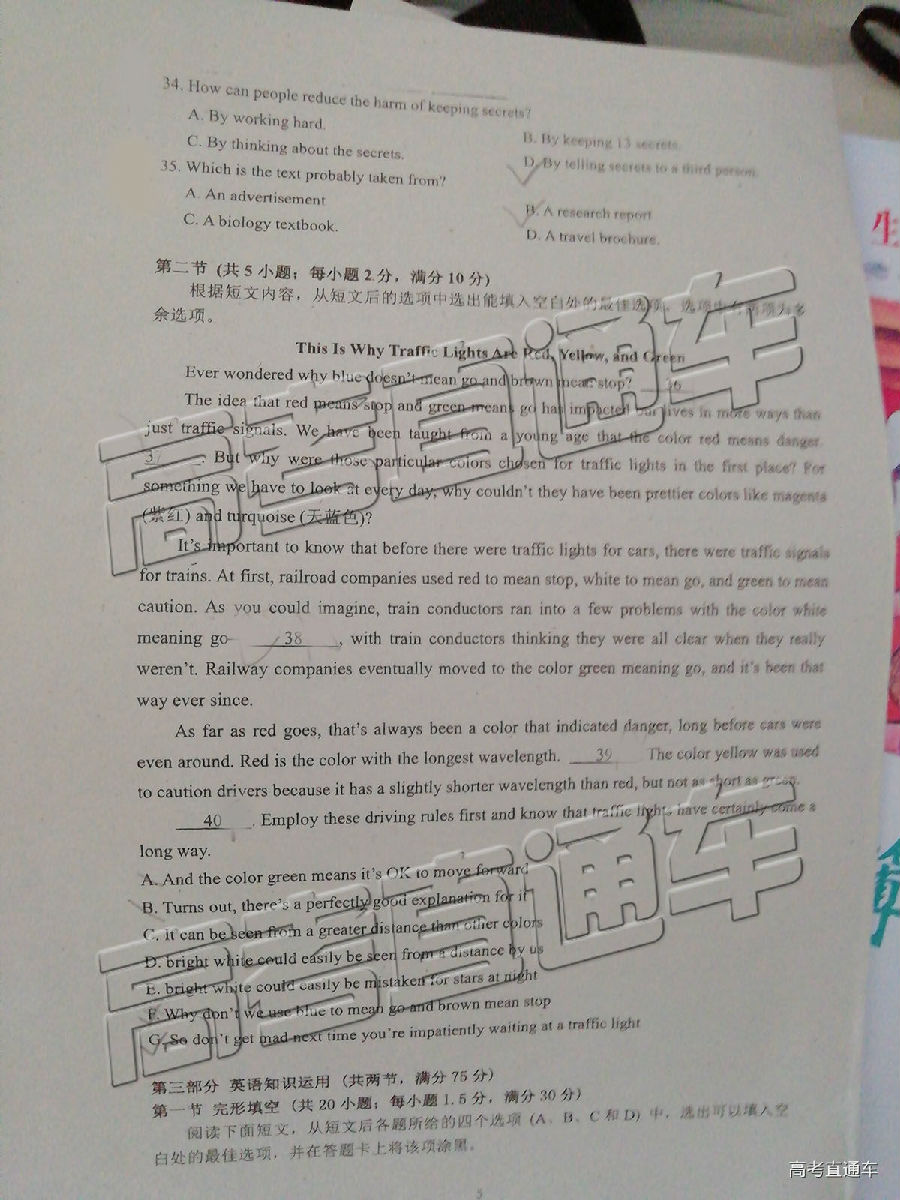 34. How can people reduce the harm of keeping secrets?
A. By working hard.
B. By keeping 13 secrets.
C. By thinking about the secrets.
D. By telling secrets to a third person.
35. Which is the text probably taken from?
A. An advertisement
B. A research report
C. A biology textbook.
D. A travel brochure.
第二节 (共 5 小题；每小题 2 分，满分 10 分)
根据短文内容，从短文后的选项中选出能填入空白处的最佳选项。选项中有两项为多
余选项。
This Is Why Traffic Lights Are Red, Yellow, and Green
Ever wondered why blue doesn't mean go and brown mean stop? 36
The idea that red means stop and green means go has impacted our lives in more ways than
just traffic signals. We have been taught from a young age that the color red means danger.
37 . But why were those particular colors chosen for traffic lights in the first place? For
something we have to look at every day, why couldn't they have been prettier colors like magenta
(紫红) and turquoise (天蓝色)?
It's important to know that before there were traffic lights for cars, there were traffic signals
for trains. At first, railroad companies used red to mean stop, white to mean go, and green to mean
caution. As you could imagine, train conductors ran into a few problems with the color white
meaning go- 38 , with train conductors thinking they were all clear when they really
weren't. Railway companies eventually moved to the color green meaning go, and it's been that
way ever since.
As far as red goes, that's always been a color that indicated danger, long before cars were
even around. Red is the color with the longest wavelength. 39 The color yellow was used
to caution drivers because it has a slightly shorter wavelength than red, but not as short as green.
40 . Employ these driving rules first and know that traffic lights have certainly come a
long way.
A. And the color green means it's OK to move forward
B. Turns out, there's a perfectly good explanation for it
C. it can be seen from a greater distance than other colors
D. bright white could easily be seen from a distance by us
E. bright white could easily be mistaken for stars at night
F. Why don't we use blue to mean go and brown mean stop
G. So don't get mad next time you're impatiently waiting at a traffic light
第三部分 英语知识运用 (共两节，满分 75 分)
第一节 完形填空 (共 20 小题；每小题 1.5 分，满分 30 分)
阅读下面短文，从短文后各题所给的四个选项 (A、B、C 和 D) 中，选出可以填入空
白处的最佳选项，并在答题卡上将该项涂黑。
5
高考直通车
高考直通车
高考直通车
生